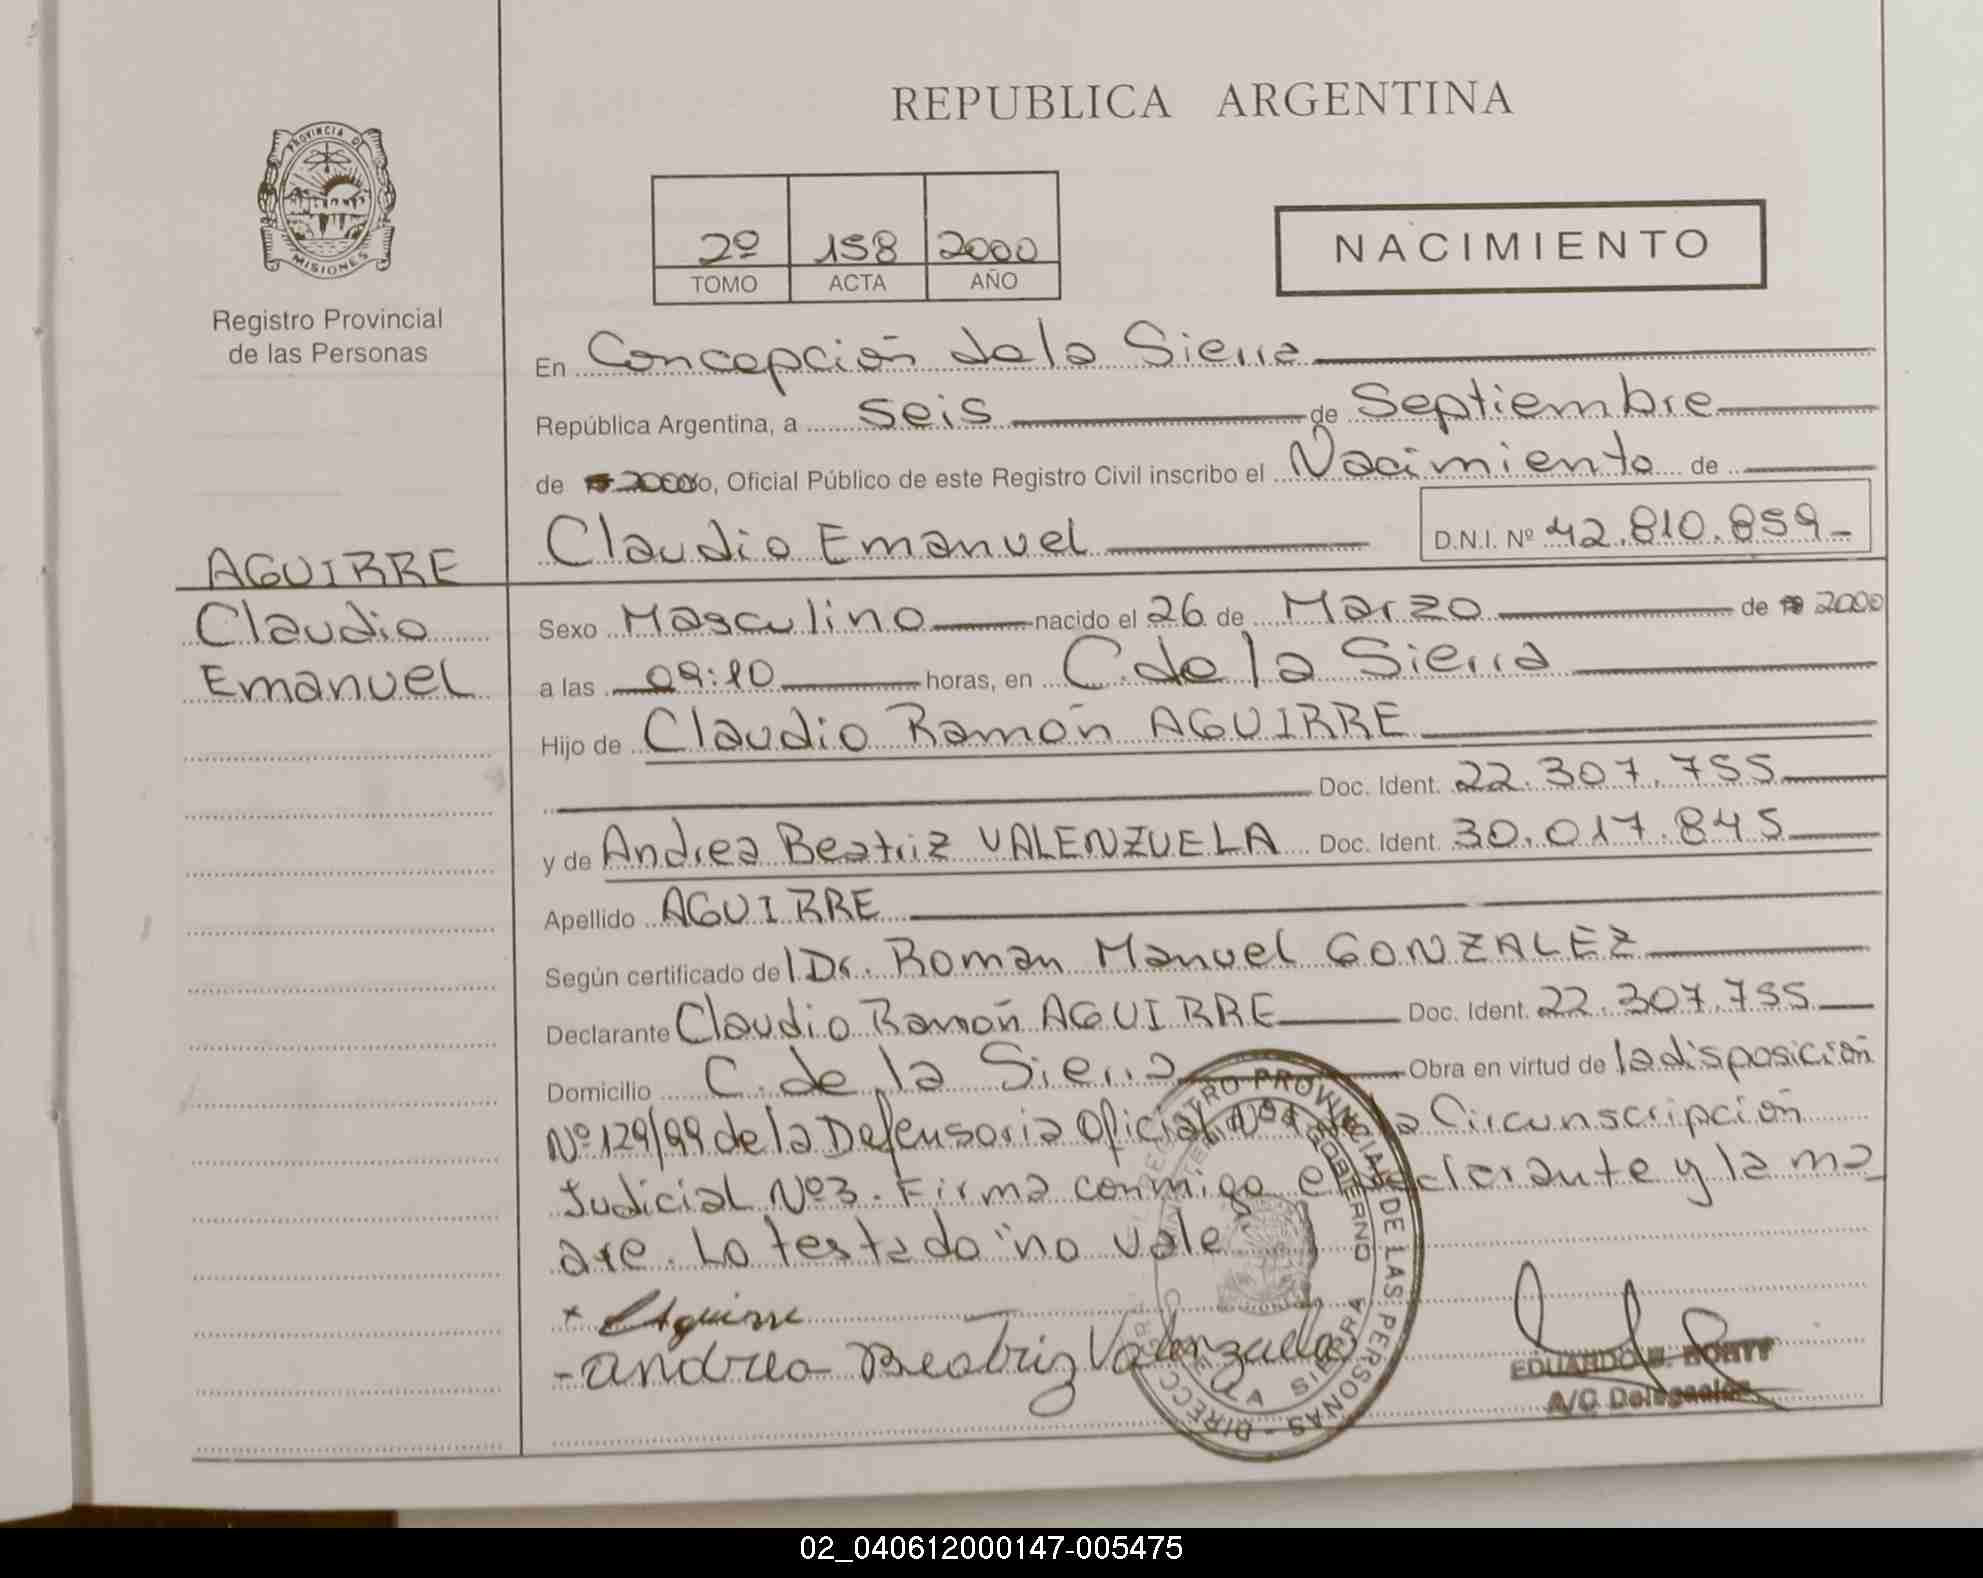 REPUBLICA ARGENTINA
PROVINCIA DE
MISIONES
Registro Provincial
de las Personas
2º 158 2000
TOMO ACTA AÑO
NACIMIENTO
En Concepción de la Sierra
República Argentina, a seis de Septiembre
de 2000, Oficial Público de este Registro Civil inscribo el Nacimiento de
Claudio Emanuel D.N.I. Nº 42.810.859-
AGUIRRE
Claudio
Emanuel
Sexo Masculino nacido el 26 de Marzo de 2000
a las 09:10 horas, en C. de la Sierra
Hijo de Claudio Ramón AGUIRRE
Doc. Ident. 22.307.755
y de Andrea Beatriz VALENZUELA Doc. Ident. 30.017.845
Apellido AGUIRRE
Según certificado del Dr. Roman Manuel GONZALEZ
Declarante Claudio Ramón AGUIRRE Doc. Ident. 22.307.755
Domicilio C. de la Sierra Obra en virtud de la disposición
Nº 129/99 de la Defensoria Oficial Nº1 de la Circunscripción
Judicial Nº3. Firma conmigo el declarante y la ma
dre. Lo testado no vale
x CAguirre
- Andrea Beatriz Valenzuela
PROVINCIAL DE LAS PERSONAS
GOBIERNO
SIERRA
EDUARDO
A/C Delegación
02_040612000147-005475